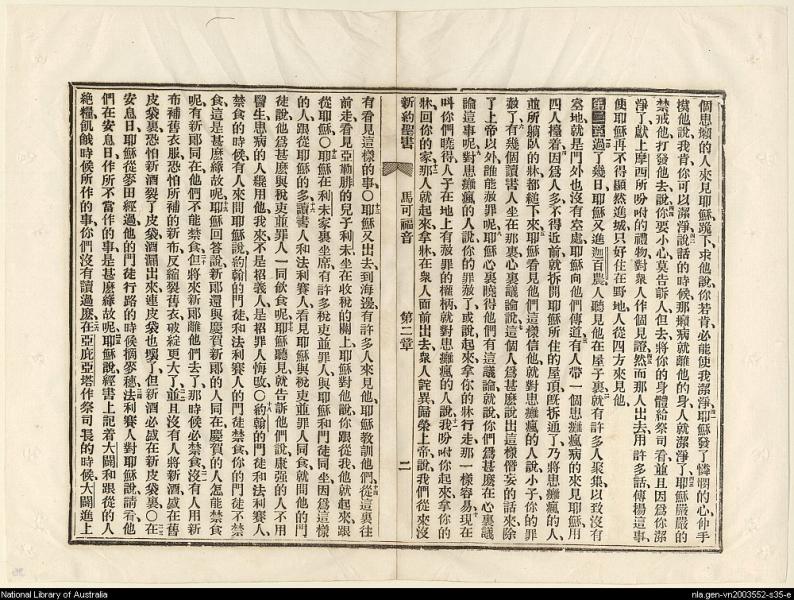 個患癩的人來見耶穌跪下求他說你若肯必能使我潔淨耶穌發了憐憫的心伸手
摸他說我肯你可以潔淨說話的時候那癩病就離他的身人就潔淨了耶穌嚴嚴的
禁戒他打發他去說你要小心莫告訴人但去將你的身體給祭司看並且因爲你潔
淨了獻上摩西所吩咐的禮物對衆人作個見證然而那人出去用許多話傳揚這事
使耶穌再不得顯然進城只好住在野地人從四方來見他
第二章過了幾日耶穌又進迦百農人聽見他在屋子裏就有許多人聚集以致沒有
空地就是門外也沒有空處耶穌向他們傳道有人帶一個患癱瘋病的來見耶穌用
四人擡着因爲人多不得近前就拆開耶穌所住的屋頂旣拆通了乃將患癱瘋的人
並所躺臥的牀都縋下來耶穌看見他們這樣信他就對患癱瘋的人說小子你的罪
赦了有幾個讀書人坐在那裏心裏議論說這個人爲甚麽說出這樣僭妄的話來除
了上帝以外誰能赦罪呢耶穌心裏曉得他們有這議論就說你們爲甚麽在心裏議
論這事呢對患癱瘋的人說你的罪赦了或說起來拿你的牀行走那一樣容易現在
叫你們曉得人子在地上有赦罪的權柄就對患癱瘋的人說我吩咐你起來拿你的
牀回你的家那人就起來拿牀在衆人面前出去衆人詫異歸榮上帝說我們從來沒
新約聖書 馬可福音 第二章 二
有看見這樣的事○耶穌又出去到海邊有許多人來見他耶穌敎訓他們從這裏往
前走看見亞勒腓的兒子利未坐在收稅的關上耶穌對他說你跟從我他就起來跟
從耶穌○耶穌在利未家裏坐席有許多稅吏並罪人與耶穌和門徒同坐因爲這樣
的人跟從耶穌的多讀書人和法利賽人看見耶穌與稅吏並罪人同食就問他的門
徒說他爲甚麽與稅吏並罪人一同飲食呢耶穌聽見就告訴他們說康强的人不用
醫生患病的人纔用他我來不是招義人是招罪人悔改○約翰的門徒和法利賽人
禁食的時候有人來問耶穌說約翰的門徒和法利賽人的門徒禁食你的門徒不禁
食這是甚麽緣故呢耶穌回答說新郞還與慶賀新郞的人同在慶賀的人怎能禁食
呢有新郞同在他們不能禁食但將來新郞離他們去了那時候必禁食沒有人用新
布補舊衣服恐怕所補的新布反縮裂舊衣破綻更大了並且沒有人將新酒盛在舊
皮袋裏恐怕新酒裂了皮袋酒漏出來連皮袋也壞了但新酒必盛在新皮袋裏○在
安息日耶穌從麥田經過他的門徒行路的時候摘麥穗法利賽人對耶穌說請看他
們在安息日作所不當作的事是甚麽緣故呢耶穌說經書上記着大闢和跟從的人
絶糧飢餓時候所作的事你們沒有讀過麽在亞庇亞塔作祭司長的時候大闢進上
National Library of Australia
nla.gen-vn2003552-s35-e